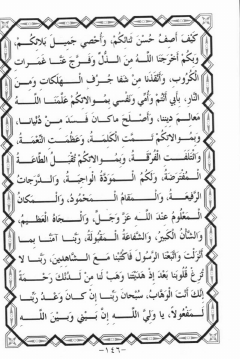 كَيْفَ أَصِفُ حُسْنَ ثَنَائِكُمْ، وَأُحْصِي جَمِيلَ بَلَائِكُمْ،
وَبِكُمْ أَخْرَجَنَا اللَّهُ مِنَ الذُّلِّ وَفَرَّجَ عَنَّا غَمَرَاتِ
الْكُرُوبِ، وَأَنْقَذَنَا مِنْ شَفَا جُرُفِ الْهَلَكَاتِ وَمِنَ
النَّارِ، بِأَبِي أَنْتُمْ وَأُمِّي وَنَفْسِي بِمُوَالَاتِكُمْ عَلَّمَنَا اللَّهُ
مَعَالِمَ دِينِنَا، وَأَصْلَحَ مَا كَانَ فَسَدَ مِنْ دُنْيَانَا،
وَبِمُوَالَاتِكُمْ تَمَّتِ الْكَلِمَةُ، وَعَظُمَتِ النِّعْمَةُ،
وَائْتَلَفَتِ الْفُرْقَةُ، وَبِمُوَالَاتِكُمْ تُقْبَلُ الطَّاعَةُ
الْمُفْتَرَضَةُ، وَلَكُمُ الْمَوَدَّةُ الْوَاجِبَةُ، وَالدَّرَجَاتُ
الرَّفِيعَةُ، وَالْمَقَامُ الْمَحْمُودُ، وَالْمَكَانُ
الْمَعْلُومُ عِنْدَ اللَّهِ عَزَّ وَجَلَّ، وَالْجَاهُ الْعَظِيمُ،
وَالشَّأْنُ الْكَبِيرُ، وَالشَّفَاعَةُ الْمَقْبُولَةُ، رَبَّنَا آمَنَّا بِمَا
أَنْزَلْتَ وَاتَّبَعْنَا الرَّسُولَ فَاكْتُبْنَا مَعَ الشَّاهِدِينَ، رَبَّنَا لَا
تُزِغْ قُلُوبَنَا بَعْدَ إِذْ هَدَيْتَنَا وَهَبْ لَنَا مِنْ لَدُنْكَ رَحْمَةً
إِنَّكَ أَنْتَ الْوَهَّابُ، سُبْحَانَ رَبِّنَا إِنْ كَانَ وَعْدُ رَبِّنَا
لَمَفْعُولاً، يَا وَلِيَّ اللَّهِ إِنَّ بَيْنِي وَبَيْنَ اللَّهِ
-١٤٦-